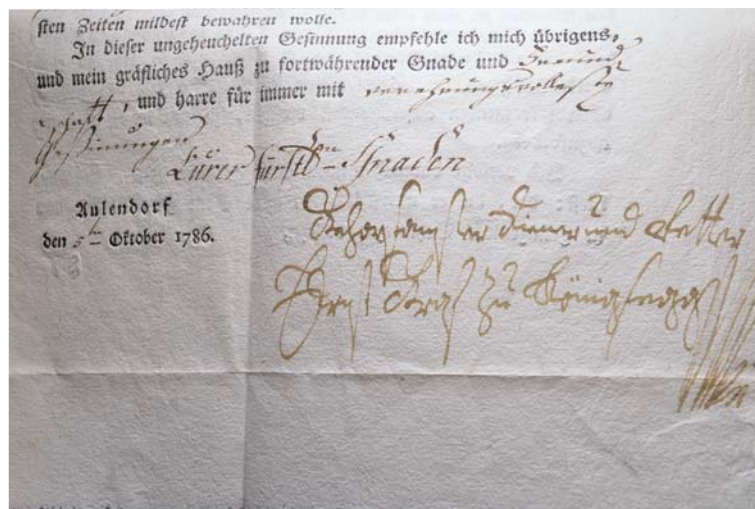 sten Zeiten mildest bewahren wolle.
In dieser ungeheuchelten Gesinnung empfehle ich mich übrigens,
und mein gräfliches Hauß zu fortwährender Gnade und Freund-
schafft, und harre für immer mit verehrungsvollesten
Gesinnungen
Eürer fürstl.en Gnaden
Aulendorf
den 5ten Oktober 1786.
Gehorsamster Diener und Vetter
Ernst Graf zu Königsegg